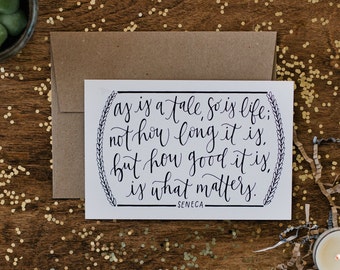 as is a tale, so is life;
not how long it is,
but how good it is,
is what matters.
SENECA